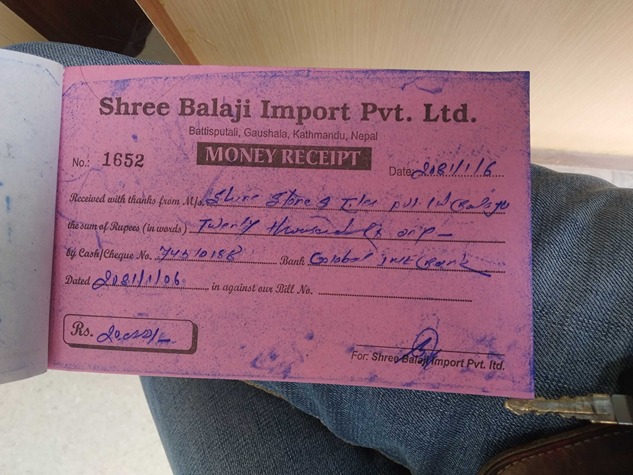 Shree Balaji Import Pvt. Ltd.
Battisputali, Gaushala, Kathmandu, Nepal
No.: 1652 MONEY RECEIPT Date 2081/1/6
Received with thanks from M/s. Stone & Tiles pvt. ltd
the sum of Rupees (in words) Twenty thousand only
by Cash/Cheque No. 74510188 Bank Golobal IME Bank
Dated 2081/1/06 in against our Bill No.
Rs. 20000/-
For: Shree Balaji Import Pvt. ltd.